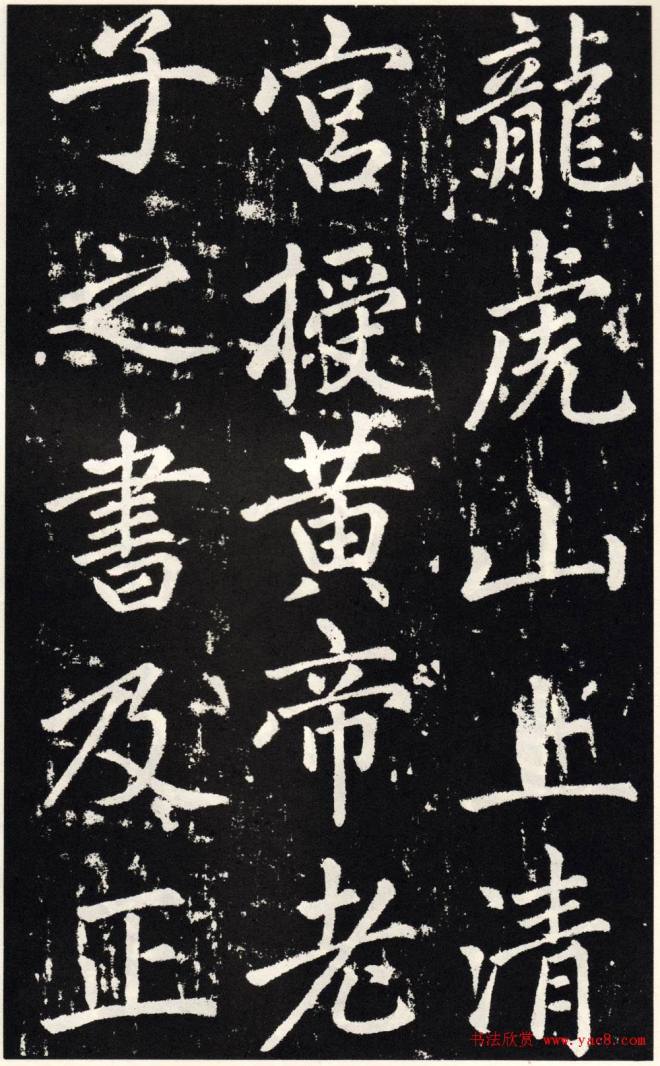 龍虎山上清
宮授黃帝老
子之書及正
书法欣赏 www.yac8.com